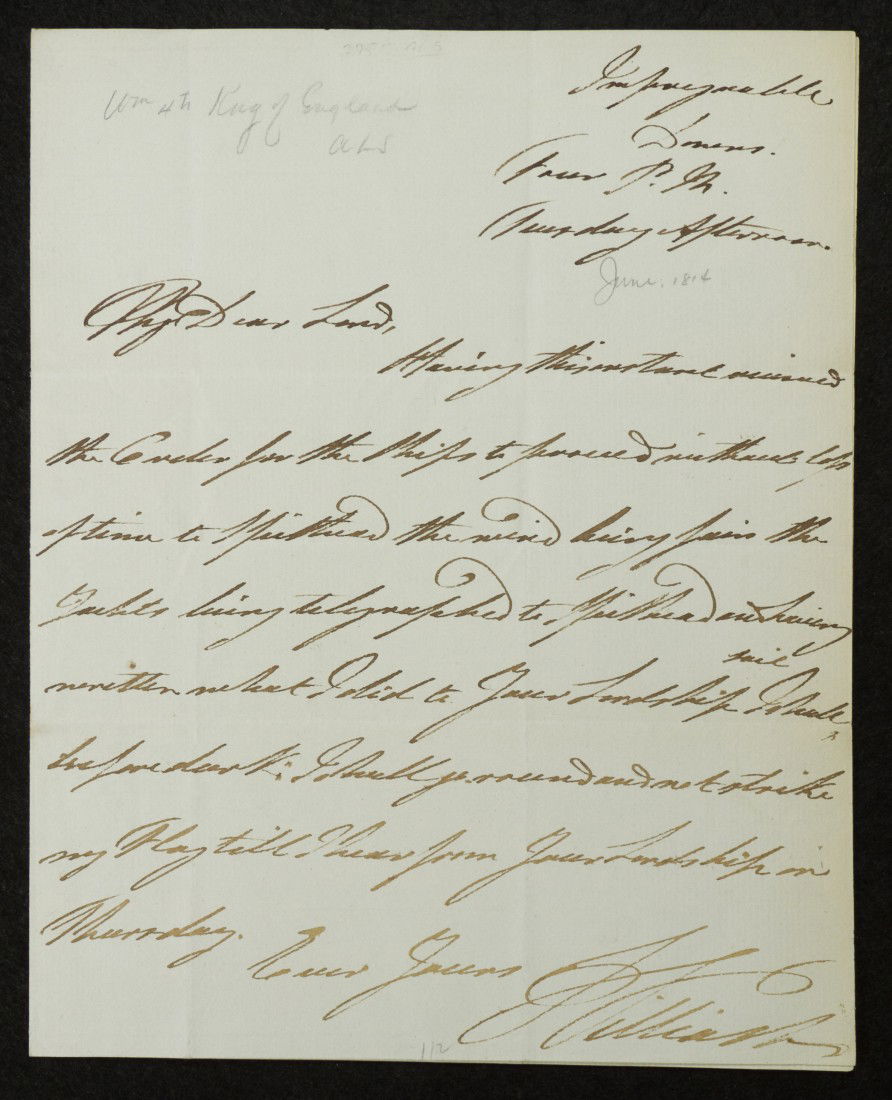 Wm 4th King of England
ALS
Impregnable
Downs.
Four P. M.
Tuesday Afternoon.
June. 1814
My Dear Lord,
Having this instant received
the Order for the Ships to proceed without loss
of time to Spithead the wind being fair the
Yachts being telegraphed to Spithead and having
written what I did to Your Lordship I shall
sail
before dark: I shall go round and not strike
my Flag till I hear from Your Lordship on
Thursday.
Ever Yours
William
112